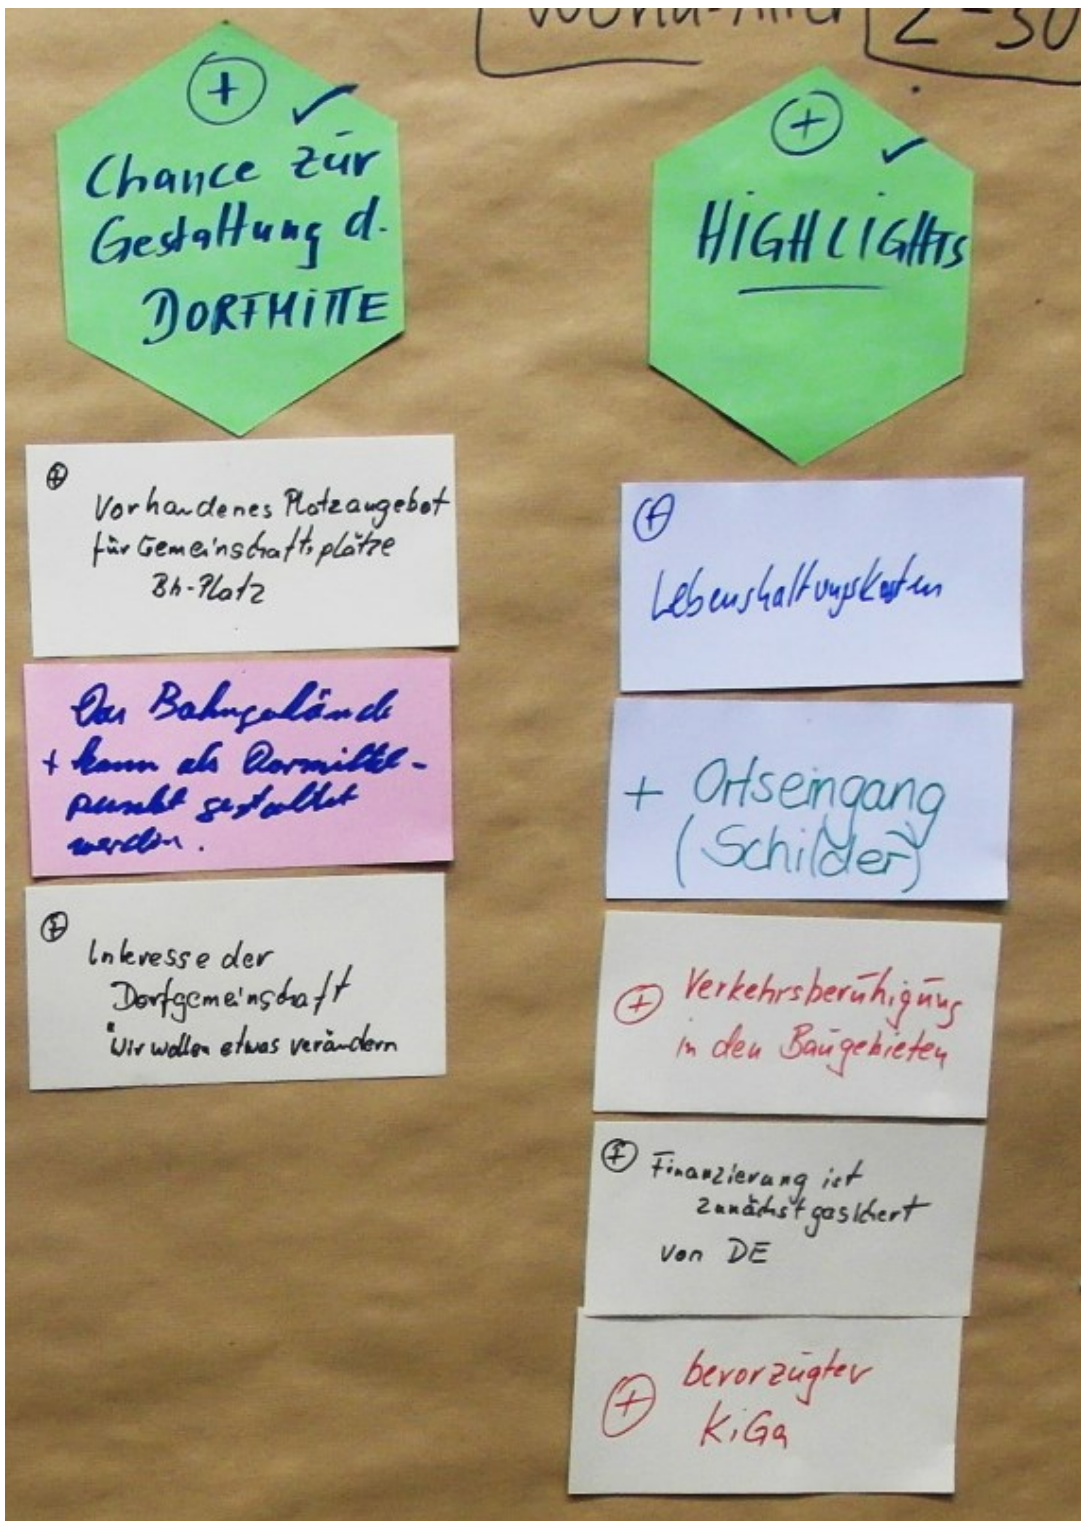 2-30
+ ✓
Chance zur
Gestaltung d.
DORFMITTE
+
Vorhandenes Platzangebot
für Gemeinschaftsplätze
Bh-Platz
Das Bahngelände
+ kann als Dormittel-
punkt gestaltet
werden.
+
Interesse der
Dorfgemeinschaft
"Wir wollen etwas verändern
+ ✓
HiGHLiGHTS
+
Lebenshaltungskosten
+ Ortseingang
(Schilder)
+ Verkehrsberuhigung
in den Baugebieten
+ Finanzierung ist
zunächst gesichert
von DE
+ bevorzugter
KiGa